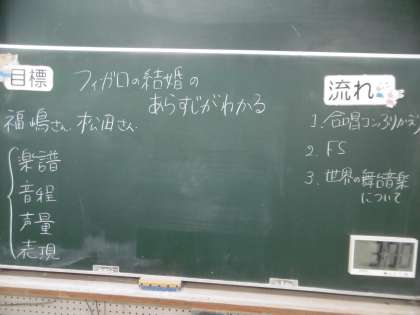 目標
フィガロの結婚の
あらすじがわかる
福嶋さん 松田さん
楽譜
音程
声量
表現
流れ
1. 合唱コンふりかえり
2. FS
3. 世界の舞台音楽
について